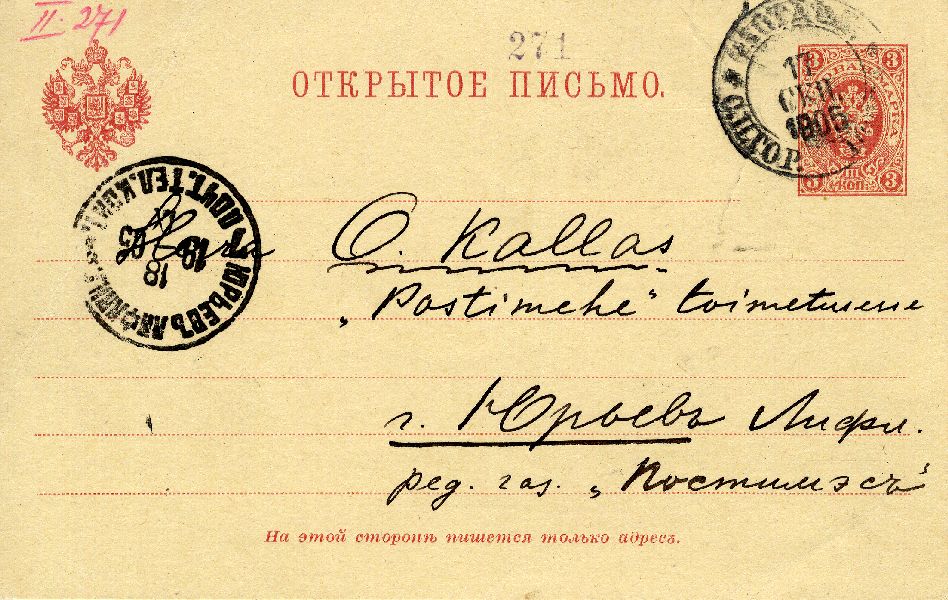 II. 271
271
ОТКРЫТОЕ ПИСЬМО.
3 3
МАРКА
3 КОП. 3
17
1905
О.П.ГОР.
ПОЧТ.ТЕЛ.КОНТ.
ЮРЬЕВЪ ЛИФЛЯН
19
18
Herra O. Kallas
„Postimehe" toimetusse
г. Юрьевъ Лифл.
ред. газ. „Постимэсъ"
На этой сторонѣ пишется только адресъ.